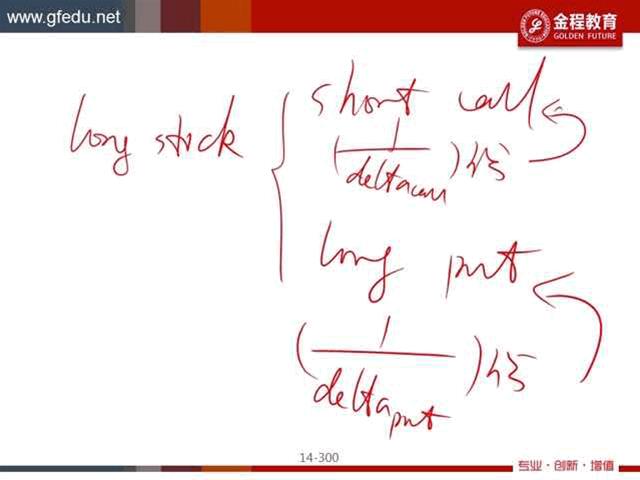 www.gfedu.net
金程教育
GOLDEN FUTURE
long stock
short call
(1/delta call)倍
long put
(1/delta put)倍
14-300
专业·创新·增值